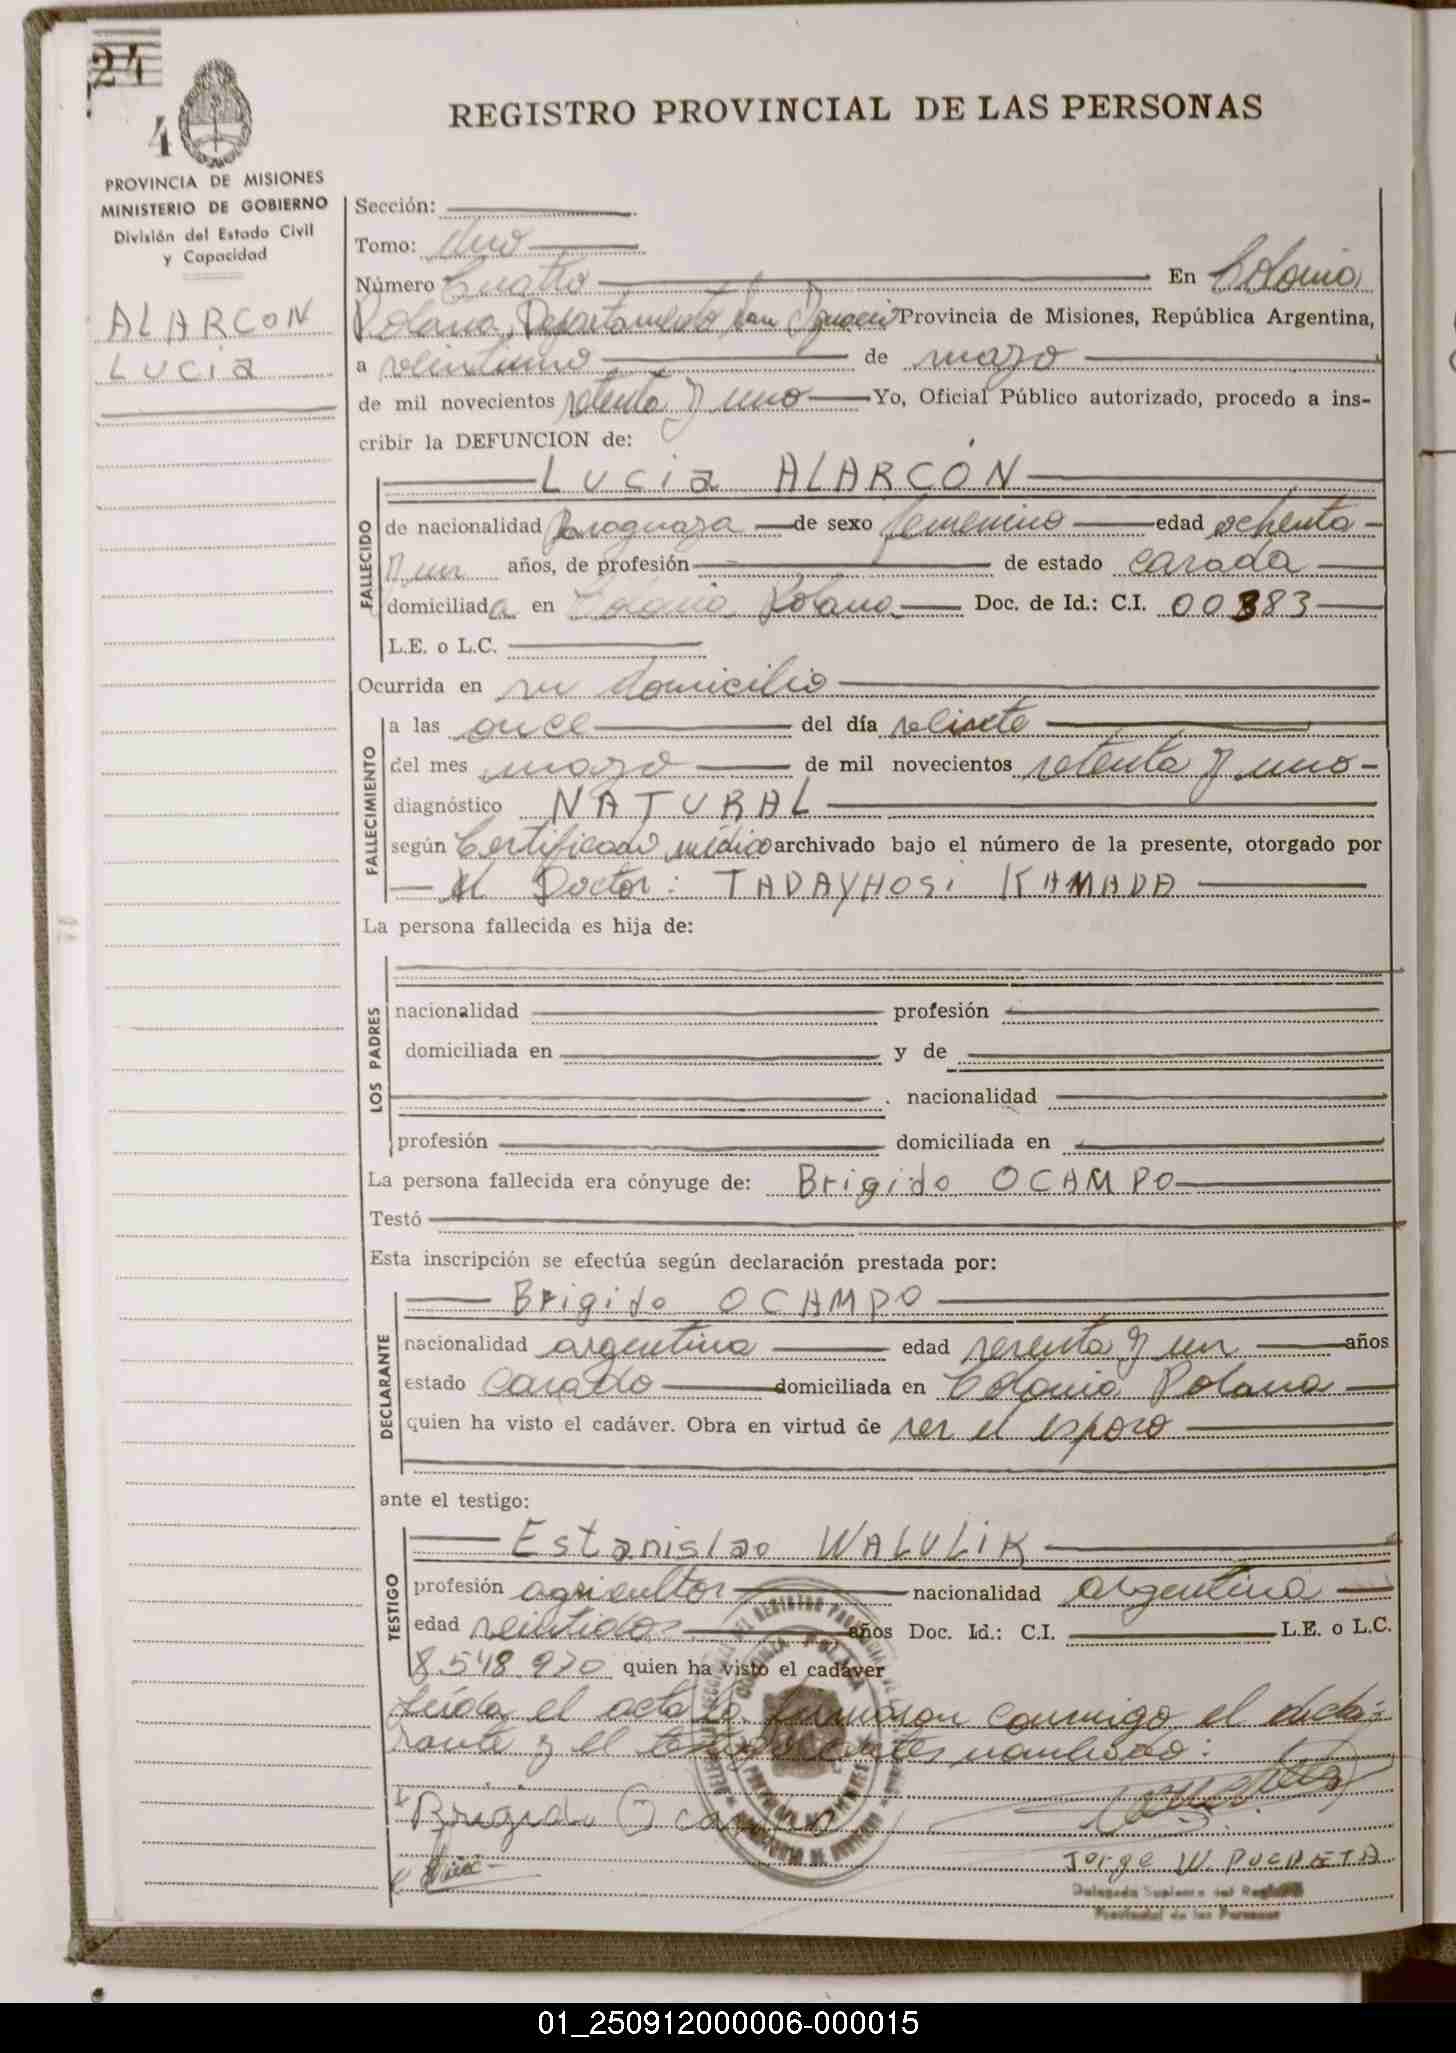 24
4
REGISTRO PROVINCIAL DE LAS PERSONAS
PROVINCIA DE MISIONES
MINISTERIO DE GOBIERNO
División del Estado Civil
y Capacidad
ALARCON
Lucia
Sección:
Tomo: uno
Número Cuatro En Colonia
Polana, Departamento San Ignacio Provincia de Misiones, República Argentina,
a veintiuno de mayo
de mil novecientos setenta y uno Yo, Oficial Público autorizado, procedo a ins-
cribir la DEFUNCION de:
Lucia ALARCÓN
FALLECIDO
de nacionalidad Paraguaya de sexo femenino edad ochenta
y un años, de profesión de estado casada
domiciliada en Colonia Polana Doc. de Id.: C.I. 00383
L.E. o L.C.
Ocurrida en su domicilio
FALLECIMIENTO
a las once del día
del mes mayo de mil novecientos setenta y uno
diagnóstico NATURAL
según Certificado médico archivado bajo el número de la presente, otorgado por
el Doctor: TADAYHOSi KAMADA
La persona fallecida es hija de:
LOS PADRES
nacionalidad profesión
domiciliada en y de
nacionalidad
profesión domiciliada en
La persona fallecida era cónyuge de: Brigido OCAMPO
Testó
Esta inscripción se efectúa según declaración prestada por:
Brigido OCAMPO
DECLARANTE
nacionalidad argentina edad sesenta y un años
estado casado domiciliada en Colonia Polana
quien ha visto el cadáver. Obra en virtud de ser el esposo
ante el testigo:
Estanislao WALULIK
TESTIGO
profesión agricultor nacionalidad argentina
edad veintidos años Doc. Id.: C.I. L.E. o L.C.
8.548.970 quien ha visto el cadáver
Leída el acta la firmaron conmigo el decla-
rante y el testigo
COLONIA POLANA
Brigido Ocampo
Jorge W. PUCHETA
Delegado Suplente del Registro
Provincial de las Personas
01_250912000006-000015